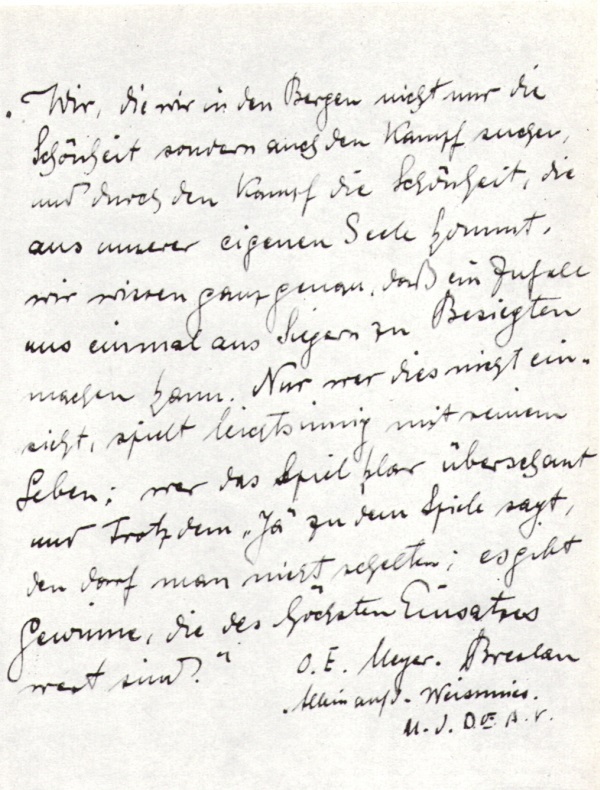 „Wir, die wir in den Bergen nicht nur die
Schönheit sondern auch den Kampf suchen,
und durch den Kampf die Schönheit, die
aus unserer eigenen Seele kommt,
wir wissen ganz genau, daß ein Zufall
uns einmal aus Siegern zu Besiegten
machen kann. Nur wer dies nicht ein-
sieht, spielt leichtsinnig mit seinem
Leben; wer das Spiel klar überschaut
und trotzdem „Ja“ zu dem Spiele sagt,
den darf man nicht schelten; es gibt
Gewinne, die des höchsten Einsatzes
wert sind.“
O. E. Meyer. Breslau
Alleinauf d. Weissmies.
M. J. D. Ö. A. V.